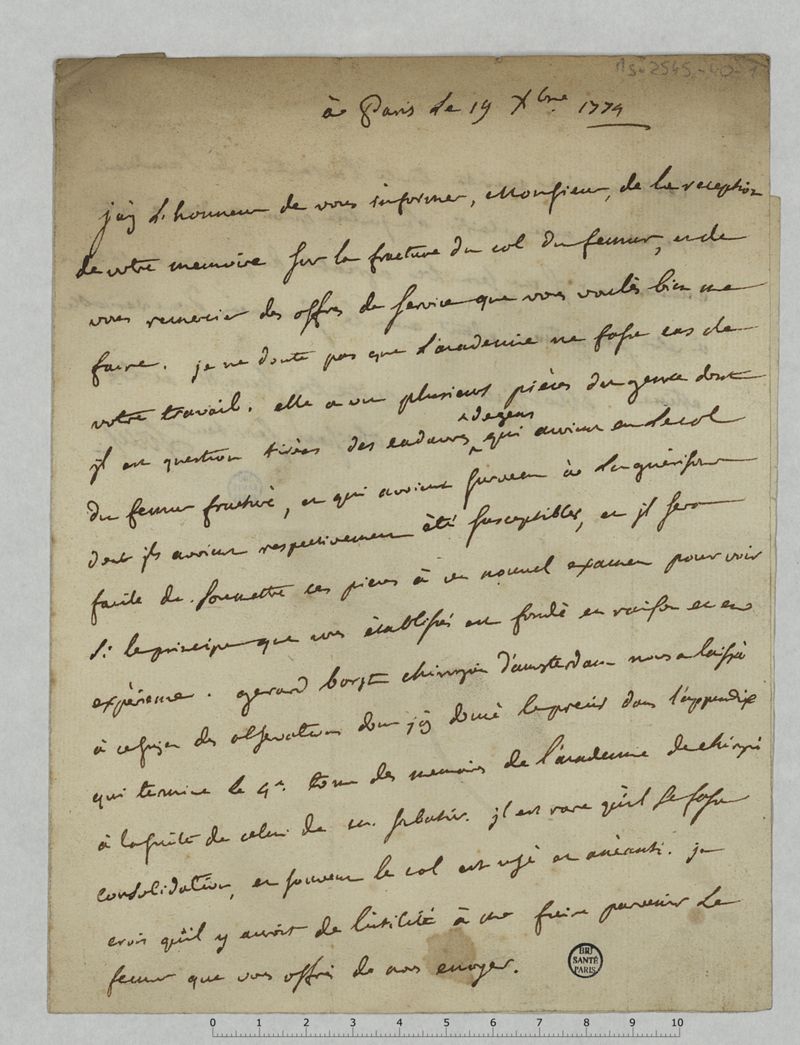 Ms 2545-40-1
à Paris Le 19 Xbre 1774
j'ay L'honneur de vous informer, Monsieur, de la reception
de votre memoire sur la fracture du col du femur, et de
vous remercier des offres de service que vous voulés bien me
faire. je ne doute pas que L'academie ne fasse cas de
votre travail. elle a vu plusieurs pièces du genre dont
jl est question tirées des cadavres de gens qui avoient eu Le col
du femur fracturé, et qui avoient survecu à La guérison
dont jls avoient respectivement été susceptibles, et jl sera
facile de soumettre ces pieces à un nouvel examen pour voir
si le principe que vous établissés est fondé en raison et en
expérience. gerard chirurgien d'amsterdam nous a laissé
à ce sujet des observations dont j'ay donné le précis dans l'appendix
qui termine le 4e. tome des memoires de l'academie de chirurgie
à la suite de celui de m. sabatier. jl est rare qu'il se fasse
consolidation, et souvent le col est usé et anéanti. je
crois qu'il y auroit de L'utilité à me faire parvenir Le
femur que vous offrés de nous envoyer.
BIU
SANTÉ
PARIS
0 1 2 3 4 5 6 7 8 9 10